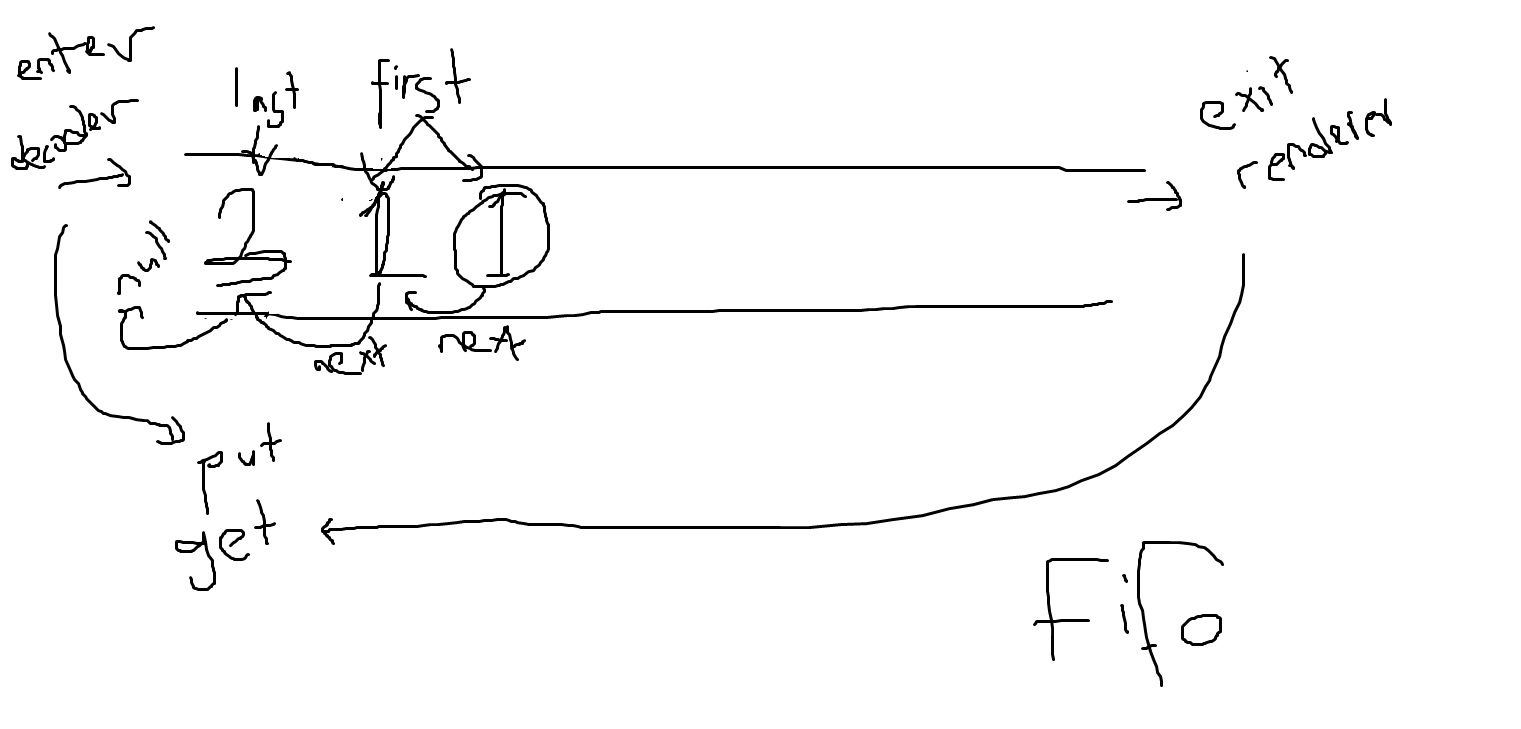 enter
decoder
last
first
exit
renderer
2
1
1
null
next
next
put
get
Fifo